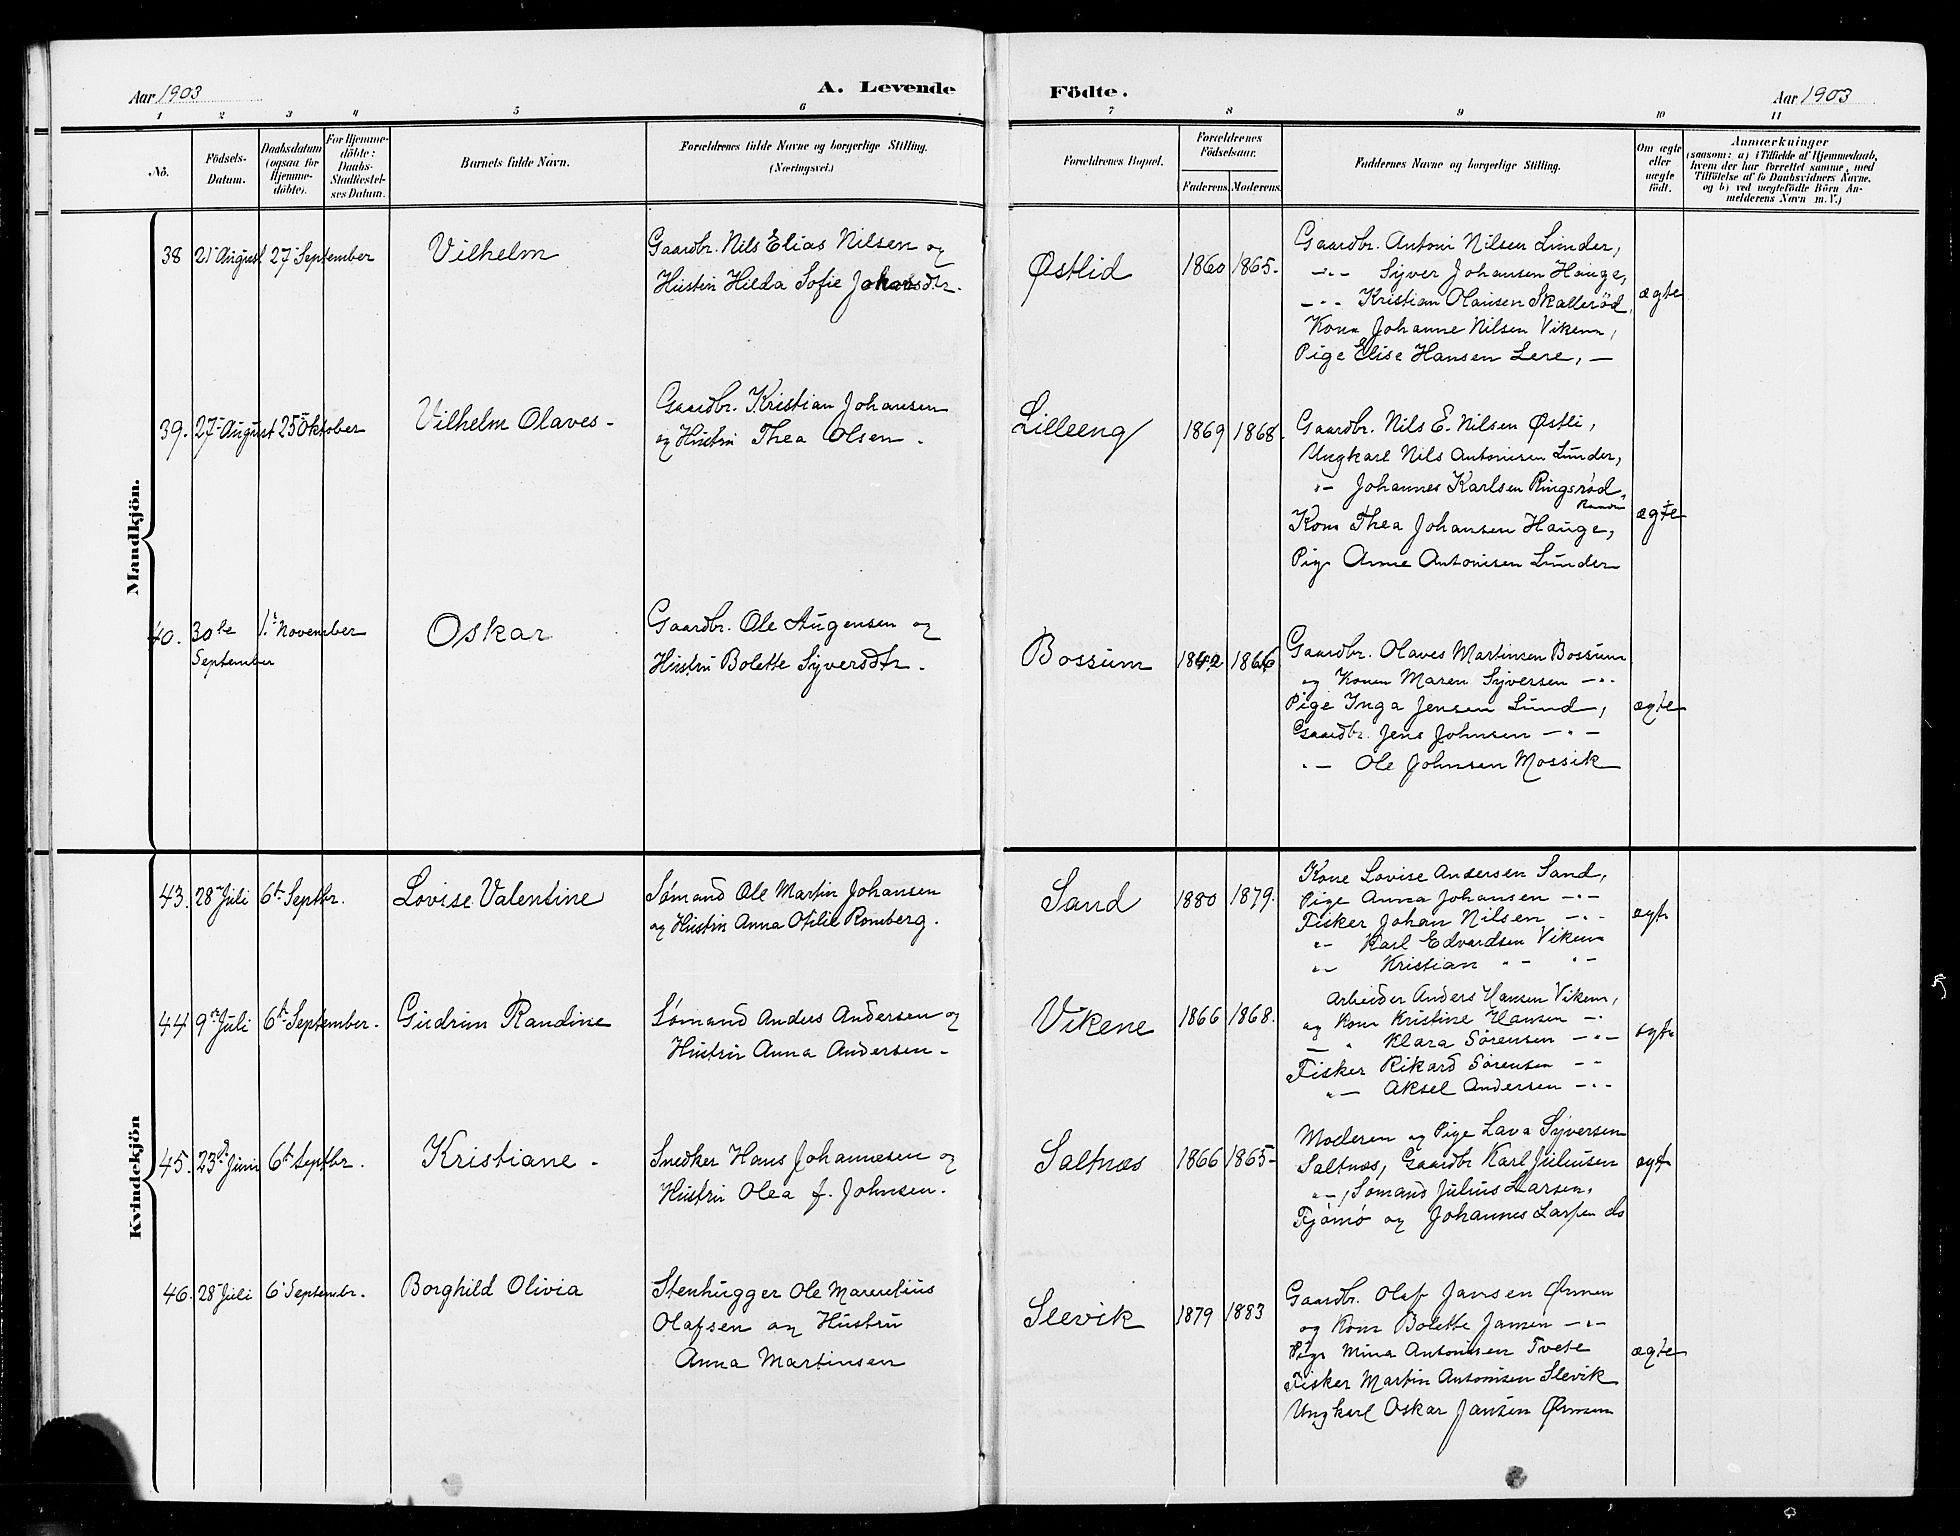 Aar 1903
A. Levende
Födte.
Aar 1903
1 2 3 4 5 6 7 8 9 10 11
No.
Födsels-Datum.
Daabsdatum (ogsaa for Hjemme-döbte).
For Hjemme-döbte: Daabs-Stadfæstel-ses Datum.
Barnets fulde Navn.
Forældrenes fulde Navne og borgerlige Stilling.
(Næringsvei.)
Forældrenes Bopæl.
Forældrenes Födselsaar.
Faderens. Moderens.
Faddernes Navne og borgerlige Stilling.
Om ægte eller uægte födt.
Anmærkninger
(saasom: a) i Tilfælde af Hjemmedaab,
hvem der har forrettet samme, med
Tilföielse af to Daabsvidners Navne,
og b) ved uægtefödte Börn An-
melderens Navn m. V.)
Mandkjön.
38 21 August 27 September Vilhelm
Gaardbr. Nils Elias Nilsen og
Hustru Hilda Sofie Johansdtr.
Østlid 1860 1865.
Gaardbr. Antoni Nilsen Lunder,
-"- Syver Johansen Hauge,
-"- Kristian Olausen Skallerød,
Kone Johanne Nilsen Vikene,
Pige Elise Hansen Lere, —
ægte
39. 27 August 25 Oktober Vilhelm Olaves -
Gaardbr. Kristian Johansen
og Hustru Thea Olsen.
Lilleeng 1869 1868.
Gaardbr. Nils E. Nilsen Østli,
Ungkarl Nils Antonisen Lunder,
"- Johannes Karlsen Ringsrød,
Kone Thea Johansen Hauge,
Pige Anne Antonisen Lunder
ægte
40. 30te September 1. November Oskar
Gaardbr. Ole Augensen og
Hustru Bolette Syversdtr.
Bossum 1842 1866
Gaardbr. Olaves Martinsen Bossum
og Konen Maren Syversen -"-
Pige Inga Jensen Lund,
Gaardbr. Jens Johnsen -"-
"- Ole Johnsen Mossik
ægte
Kvindekjön
43. 28 Juli 6t Septbr. Lovise Valentine
Sømand Ole Martin Johansen
og Hustru Anna Otilie Romberg.
Sand 1880 1879.
Kone Lovise Andersen Sand,
Pige Anna Johansen -"-
Fisker Johan Nilsen -"-
"- Karl Edvardsen Vikene
"- Kristian "- "-
ægte
44 9 Juli 6t September. Gudrun Randine
Sømand Anders Andersen og
Hustru Anna Andersen -
Vikene 1866 1868.
Arbeider Anders Hansen Vikene,
og Kone Kristine Hansen -"
— " Klara Sørensen -"-
Fisker Rikard Sørensen -"-
"- Aksel Andersen -"-
ægte
45. 23d Juni 6t Septbr. Kristiane -
Snedker Hans Johannesen og
Hustru Olea f. Johnsen.
Saltnæs 1866 1865-
Moderen og Pige Lava Syversen
Saltnæs, Gaardbr Karl Juliusen
"-, Sømand Julius Larsen,
Tjømø og Johannes Larsen do
ægte
46. 28 Juli 6 Septembr. Borghild Olivia
Stenhugger Ole Marentius
Olafsen og Hustru
Anna Martinsen
Slevik 1879 1883
Gaardbr. Olaf Jansen Ørmen
og Kone Bolette Jansen -"-
Pige Mina Antonisen Tvete
Fisker Martin Antonisen Slevik
Ungkarl Oskar Jansen Ørmen
ægte